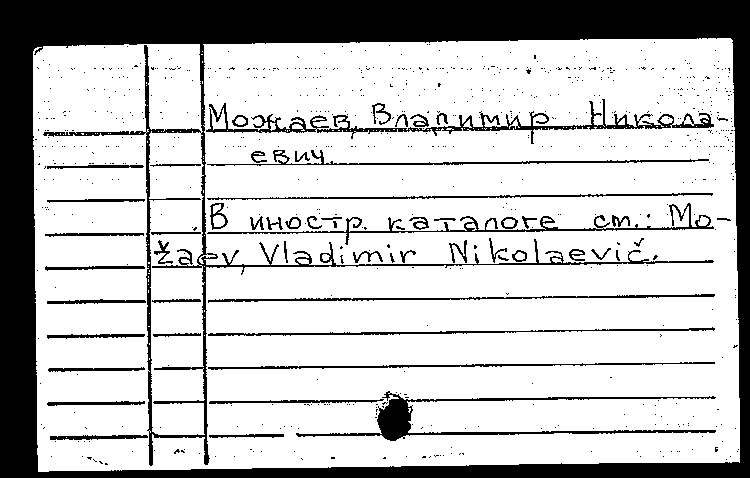 Можаев, Владимир Никола-
евич.
В иностр. каталоге см.: Mo-
žaev, Vladimir Nikolaevič.